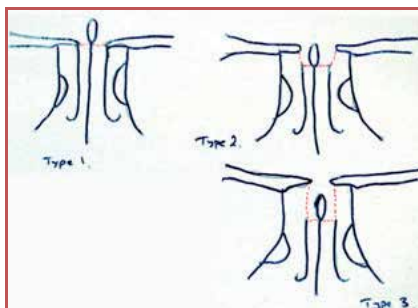 Type 1.
Type 2.
Type 3